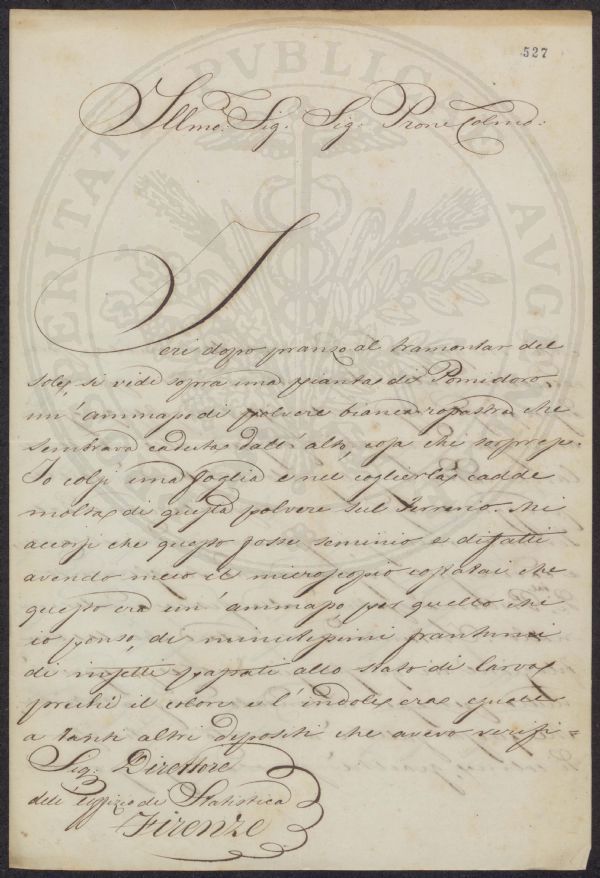 527
Illmo: Sig. Sig. Prone Colmo:
Ieri dopo pranzo al tramontar del
sole, si vide sopra una pianta di Pomidoro,
un' ammasso di polvere bianca-rossastra che
sembrava caduta dall' alto, cosa che sorprese.
Io colsi una foglia e nel coglierla cadde
molta di questa polvere sul Terreno. Mi
accorsi che questo fosse seminio e difatti
avendo meco il microscopio costatai che
questo era un' ammasso per quello che
io penso, di minutissimi frantumi
di insetti passati allo stato di larva
perchè il colore e l' indole era eguale
a tanti altri depositi che avevo verifi=
Sig. Direttore
dell' Uffizio di Statistica
Firenze